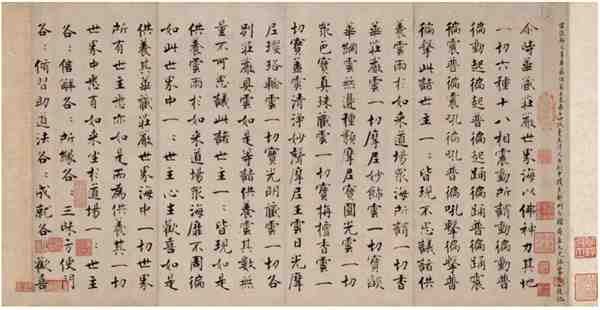 尒時華藏莊嚴世界海以佛神力其地
一切六種十八相震動所謂動徧動普
徧動起徧起普徧起踊徧踊普徧踊震
徧震普徧震吼徧吼普徧吼擊徧擊普
徧擊此諸世主一〻皆現不思議諸供
養雲雨於如来道場衆海所謂一切香
華莊嚴雲一切摩尼妙飾雲一切寶焰
華網雲無邊種類摩尼寶圓光雲一切
衆色寶真珠藏雲一切寶栴檀香雲一
切寶盖雲清淨妙聲摩尼王雲日光摩
尼瓔珞輪雲一切寶光明藏雲一切各
別莊嚴具雲如是等諸供養雲其數無
量不可思議此諸世主一〻皆現如是
供養雲雨於如来道場衆海靡不周徧
如此世界中一〻世主心生歡喜如是
供養其華藏莊嚴世界海中一切世界
所有世主悉亦如是而為供養其一切
世界中悉有如来坐於道場一〻世主
各〻信解各〻所緣各〻三昧方便門
各〻修習助道法各〻成就各〻歡喜